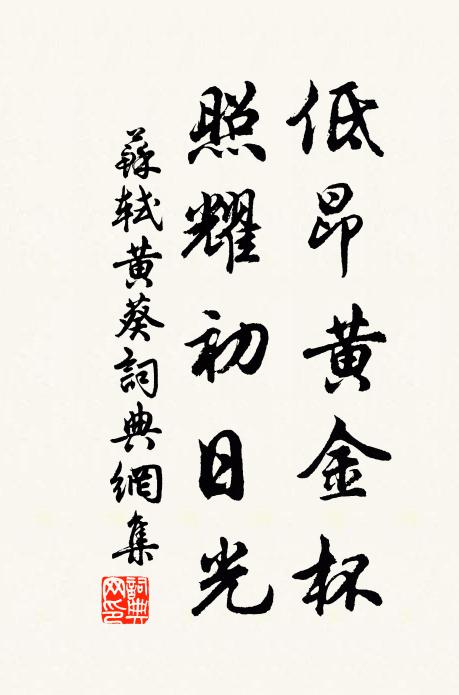 低昂黄金杯
照耀初日光
蘇軾黄葵詞典網集
詞典網印